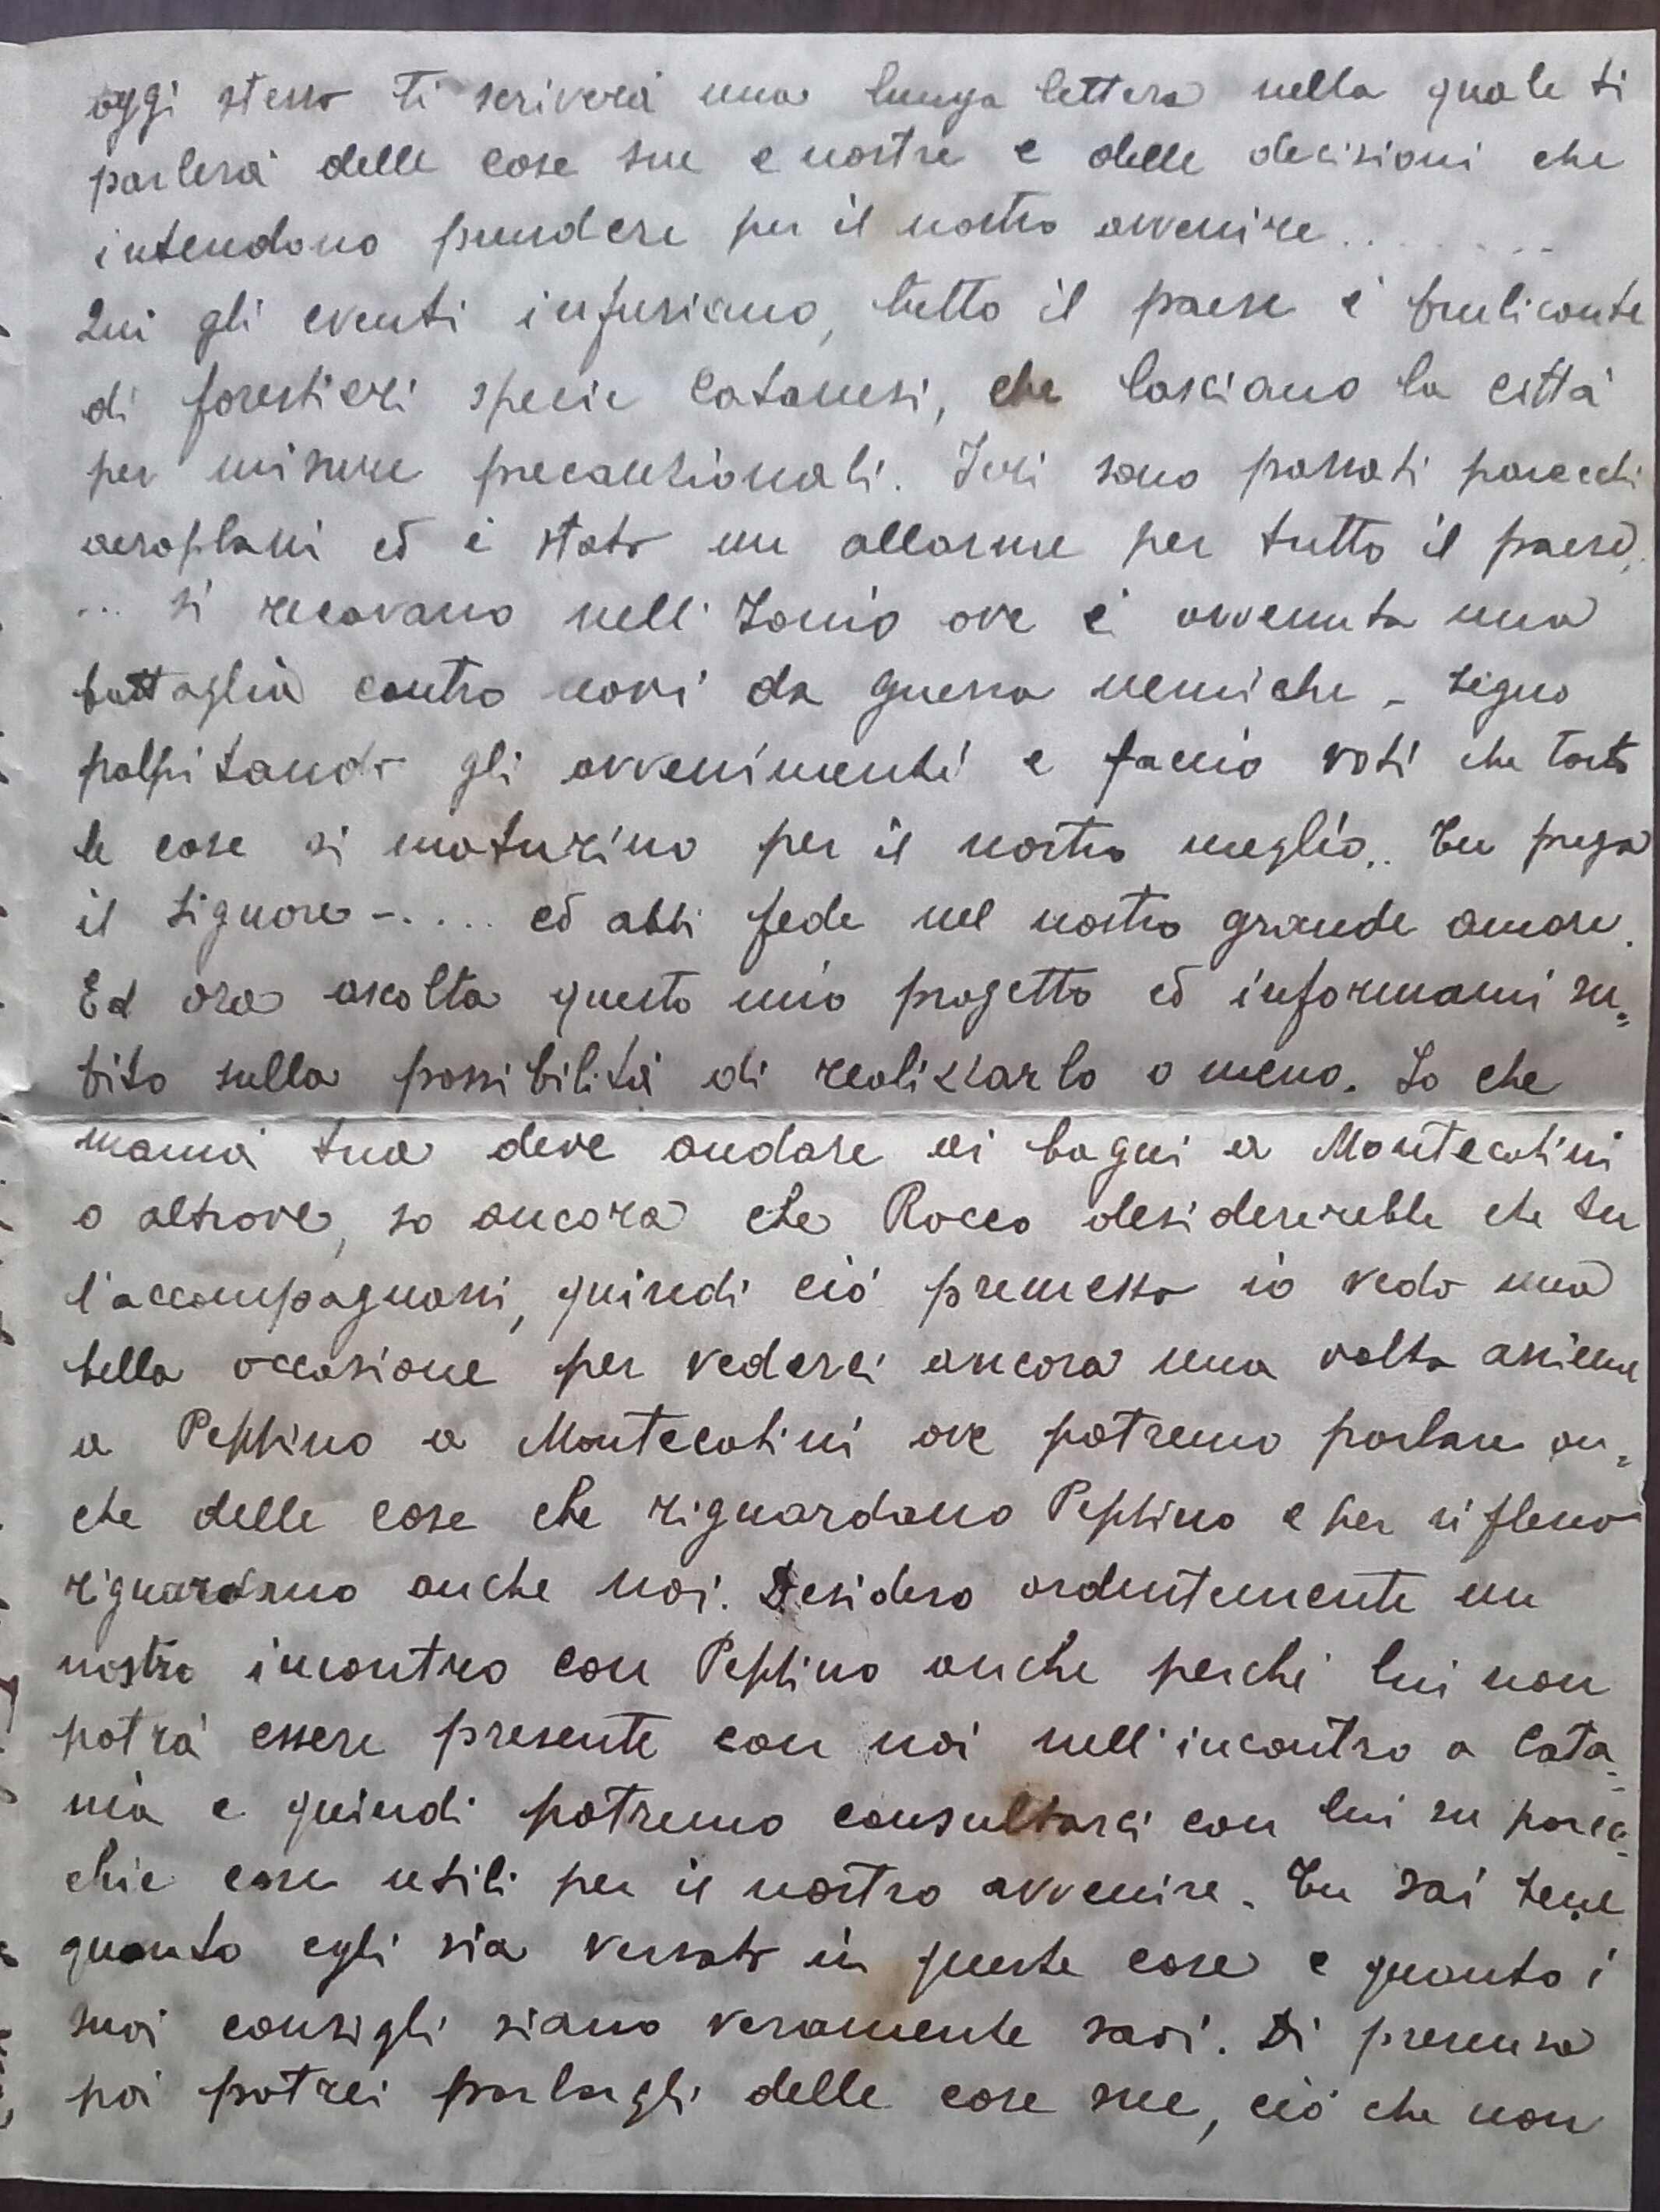 oggi stesso ti scriverà una lunga lettera nella quale ti
parlerà delle cose sue e nostre e delle decisioni che
intendono prendere per il nostro avvenire........
Qui gli eventi infuriano, tutto il paese è brulicante
di forestieri specie Catanesi, che lasciano la città
per misure precauzionali. Ieri sono passati parecchi
aeroplani ed è stato un allarme per tutto il paese,
... si recavano nell'Ionio ove è avvenuta una
battaglia contro navi da guerra nemiche - Seguo
palpitando gli avvenimenti e faccio voti che tosto
le cose si maturino per il nostro meglio.. Tu prega
il Signore -.... ed abbi fede nel nostro grande amore.
Ed ora ascolta questo mio progetto ed informami su=
bito sulla possibilità di realizzarlo o meno. So che
mamà tua deve andare ai bagni a Montecatini
o altrove, so ancora che Rocco desidererebbe che tu
l'accompagnassi, quindi ciò premesso io vedo una
bella occasione per vederci ancora una volta assieme
a Peppino a Montecatini ove potremo parlare an=
che delle cose che riguardano Peppino e per riflesso
riguardano anche noi. Desidero ardentemente un
nostro incontro con Peppino anche perchè lui non
potrà essere presente con noi nell'incontro a Cata=
nia e quindi potremo consultarci con lui su parec=
chie cose utili per il nostro avvenire. Tu sai bene
quanto egli sia versato in queste cose e quanto i
suoi consigli siano veramente savi. Di presenza
poi potrei parlargli delle cose sue, ciò che non